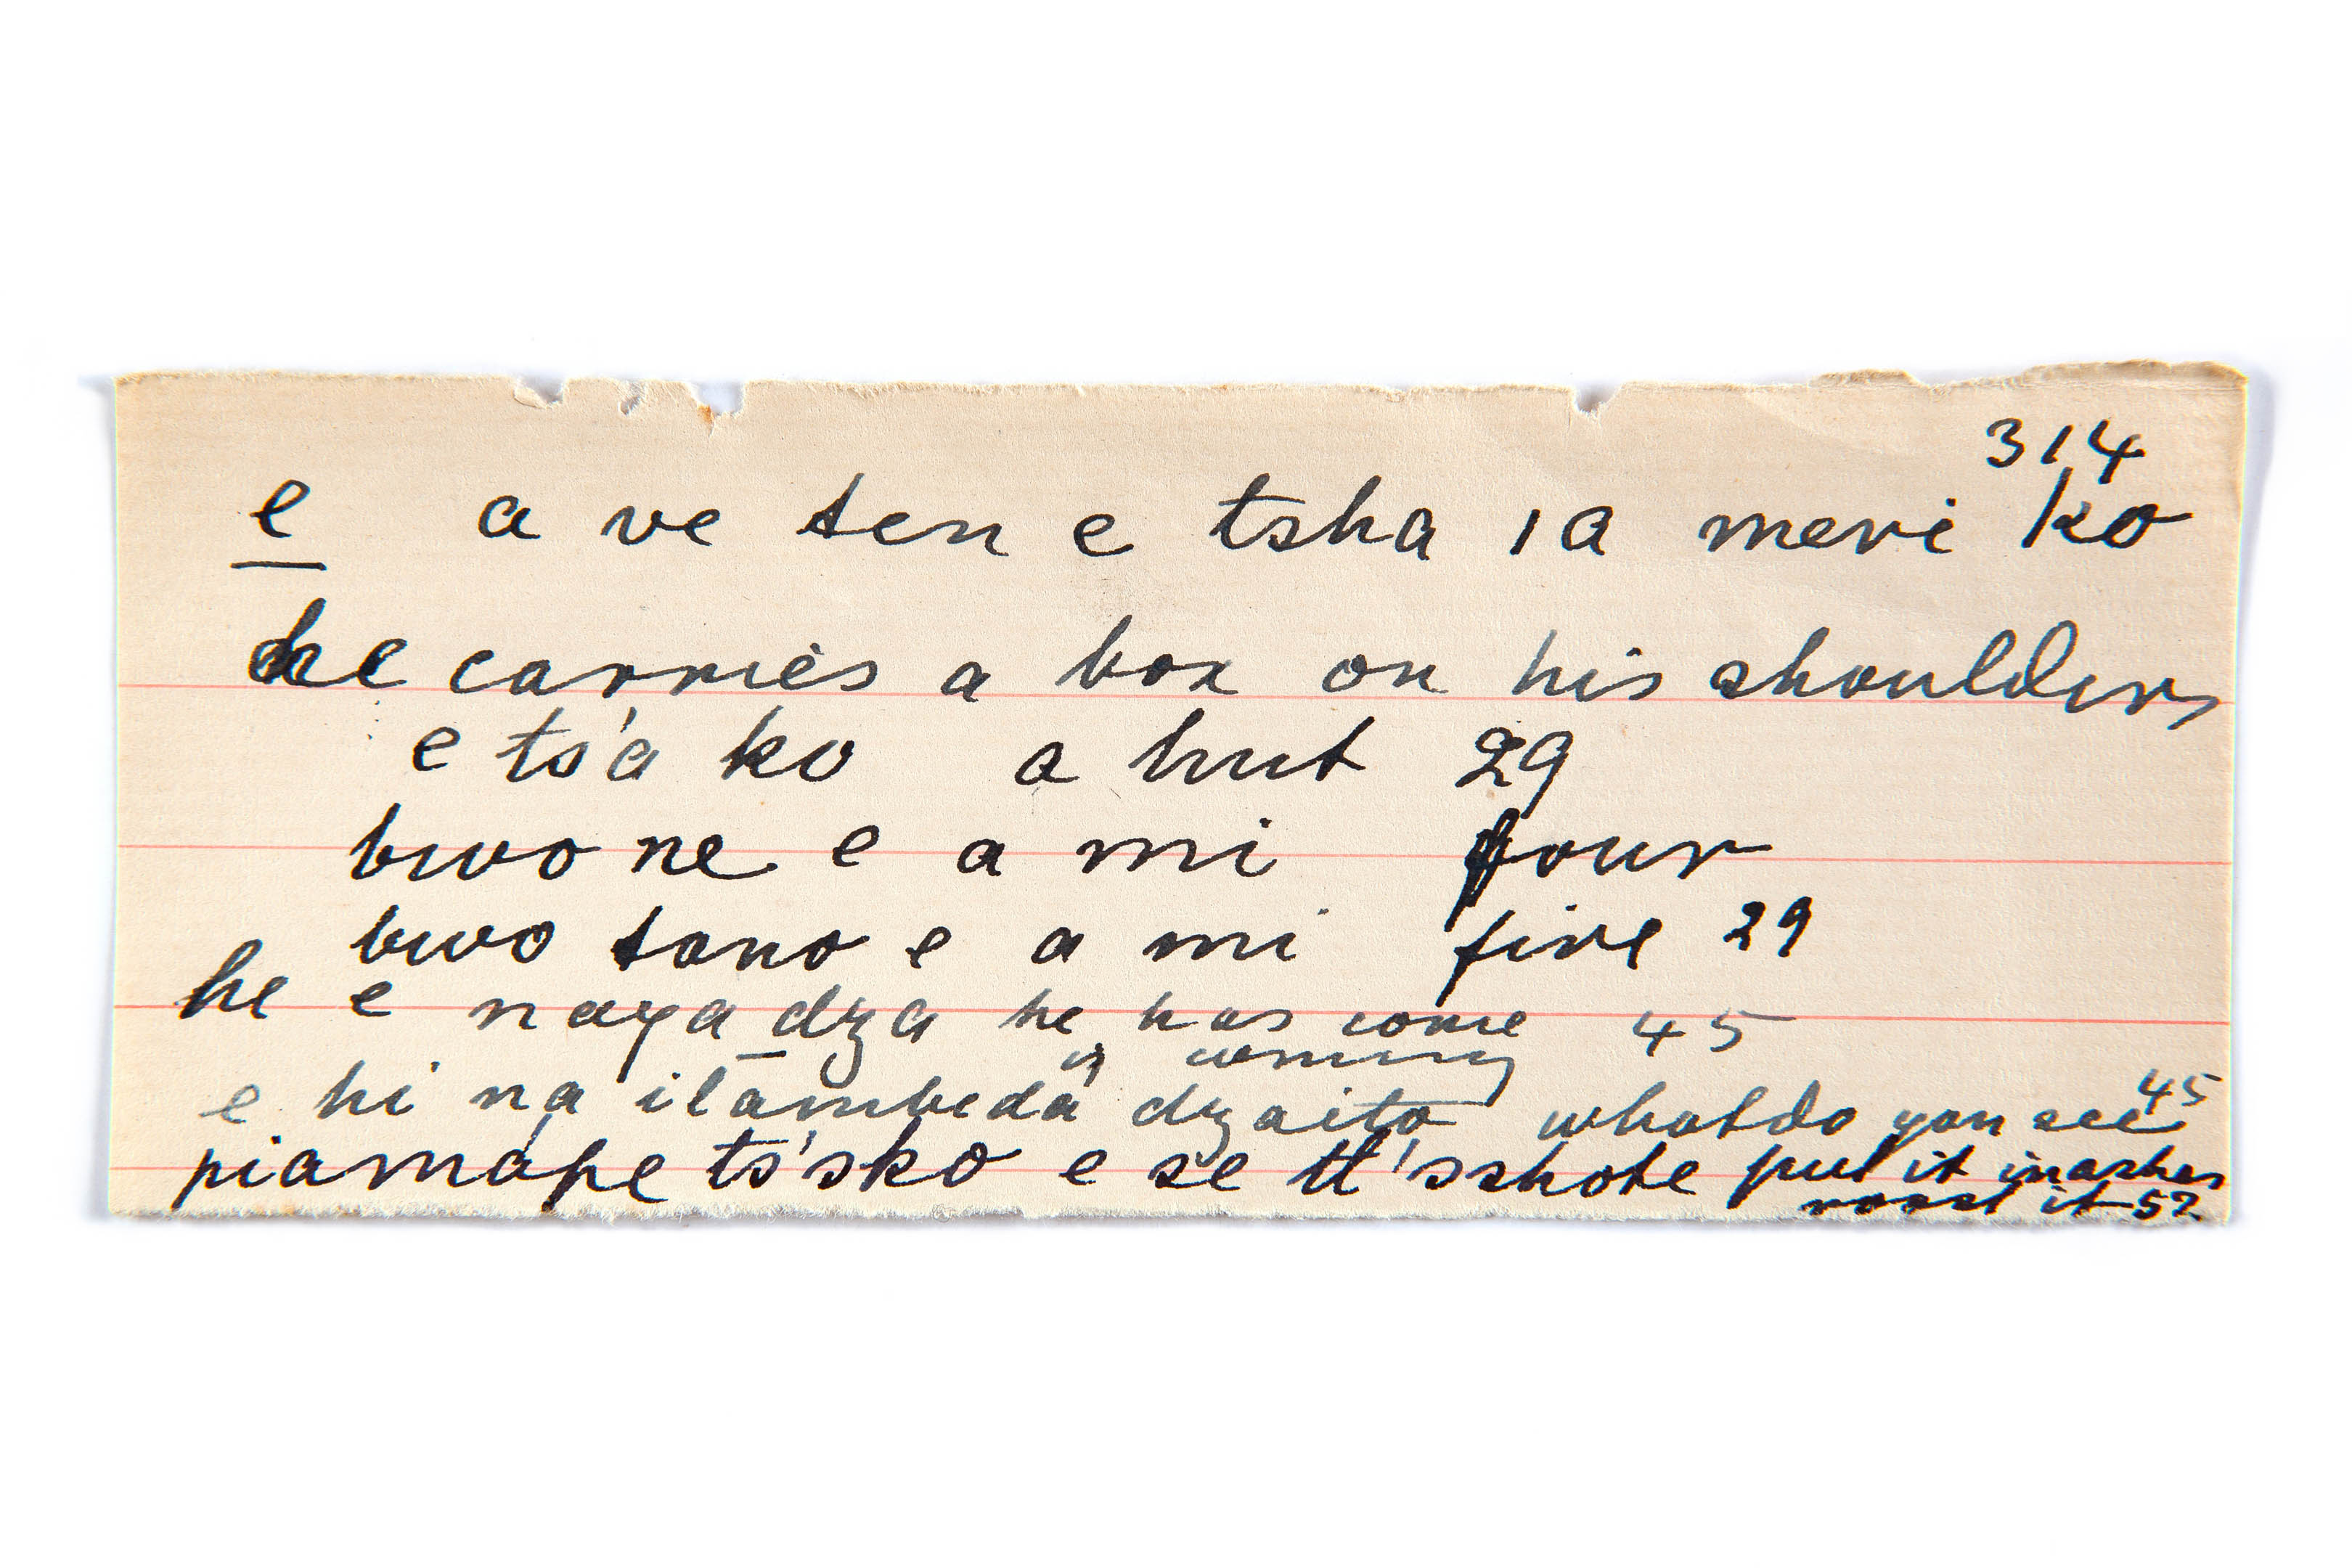 314
e a ve ten e tsha ı a meri ko
he carries a box on his shoulders
e ts'a ko a hut 29
bwo ne e a mi four
bwo tano e a mi five 29
he e naya dza he has come 45
is coming
e hi na ilambeda dzaita what do you see 45
piamape ts'sko e se tt'sshote put it in ashes
roast it 52